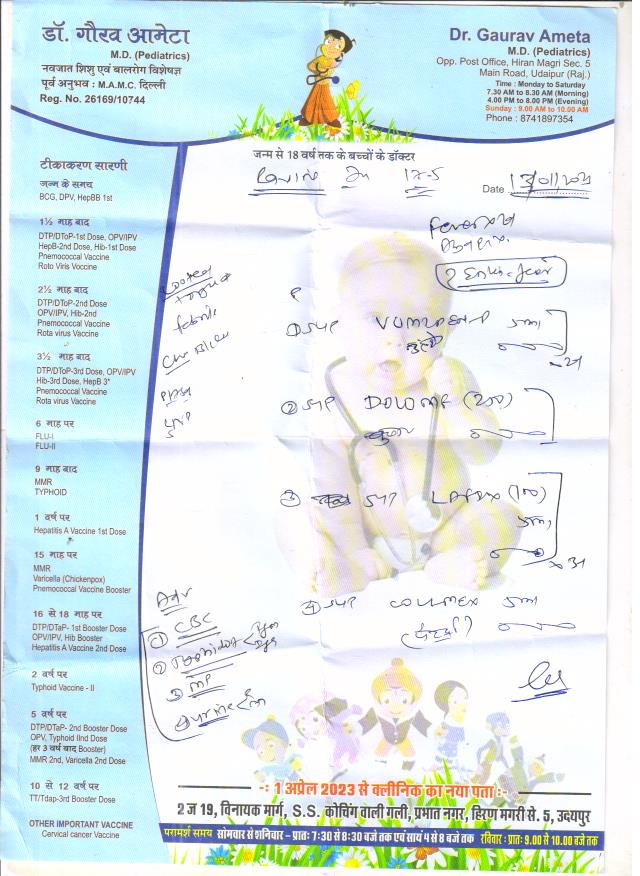 डॉ. गौरव आमेटा
M.D. (Pediatrics)
नवजात शिशु एवं बालरोग विशेषज्ञ
पूर्व अनुभव : M.A.M.C. दिल्ली
Reg. No. 26169/10744
Dr. Gaurav Ameta
M.D. (Pediatrics)
Opp. Post Office, Hiran Magri Sec. 5
Main Road, Udaipur (Raj.)
Time : Monday to Saturday
7.30 AM to 8.30 AM (Morning)
4.00 PM to 8.00 PM (Evening)
Sunday : 9.00 AM to 10.00 AM
Phone : 8741897354
जन्म से 18 वर्ष तक के बच्चों के डॉक्टर
Date
टीकाकरण सारणी
जन्म के समय
BCG, DPV, HepBB 1st
1½ माह बाद
DTP/DToP-1st Dose, OPV/IPV
HepB-2nd Dose, Hib-1st Dose
Pnemococcal Vaccine
Roto Viris Voccine
2½ माह बाद
DTP/DToP-2nd Dose
OPV/IPV, Hib-2nd
Pnemococcal Vaccine
Rota virus Vaccine
3½ माह बाद
DTP/DToP-3rd Dose, OPV/IPV
Hib-3rd Dose, HepB 3*
Pnemococcal Vaccine
Rota virus Vaccine
6 माह पर
FLU-I
FLU-II
9 माह बाद
MMR
TYPHOID
1 वर्ष पर
Hepatitis A Vaccine 1st Dose
15 माह पर
MMR
Varicella (Chickenpox)
Pnemococcal Vaccine Booster
16 से 18 माह पर
DTP/DTaP- 1st Booster Dose
OPV/IPV, Hib Booster
Hepatitis A Vaccine 2nd Dose
2 वर्ष पर
Typhoid Vaccine - II
5 वर्ष पर
DTP/DTaP- 2nd Booster Dose
OPV, Typhoid IInd Dose
(हर 3 वर्ष बाद Booster)
MMR 2nd, Varicella 2nd Dose
10 से 12 वर्ष पर
TT/Tdap-3rd Booster Dose
OTHER IMPORTANT VACCINE
Cervical cancer Vaccine
17.5
Fever
? Enteric fever
coated
tongue
febrile
① Syp 5ml
② Syp
③ Syp 5ml
④ Syp 5ml
Adv
① CBC
②
③ MP
④ urine
-: 1 अप्रेल 2023 से क्लीनिक का नया पता :-
2 ज 19, विनायक मार्ग, S.S. कोचिंग वाली गली, प्रभात नगर, हिरण मगरी से. 5, उदयपुर
परामर्श समय सोमवार से शनिवार – प्रातः 7:30 से 8:30 बजे तक एवं सायं 4 से 8 बजे तक रविवार : प्रातः 9.00 से 10.00 बजे तक